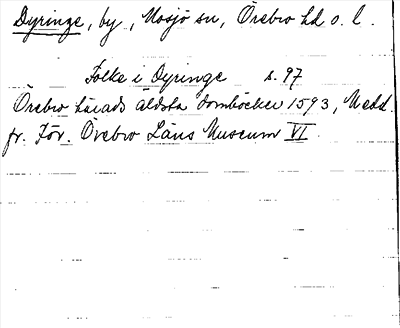 Dyringe, by, Mosjö sn, Örebro hd o. l.
Folke i Dyringe s. 97
Örebro härads äldsta domböcker 1593, Medd.
fr. För. Örebro Läns Museum VI.